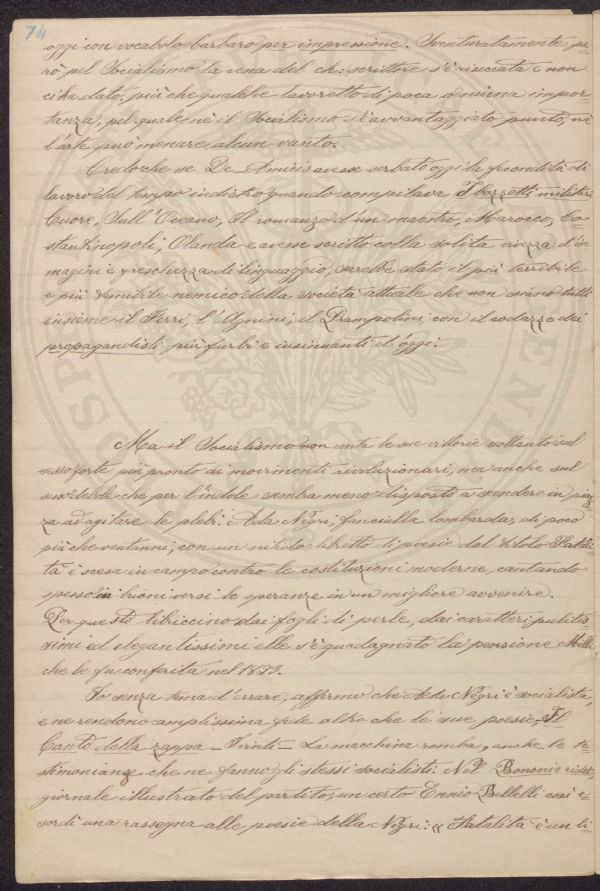 74
oggi con vocabolo barbaro per impressione. Sventuratamente pe-
rò pel Socialismo la vena del ch: scrittore s'è risecata e non
ci ha dato, più che qualche lavoretto di poca o niuna impor-
tanza, pel quale nè il Socialismo s'è avvantaggiato punto, nè
l'arte può menare alcun vanto.
Credo che se De Amicis avesse serbato oggi la fecondità di
lavoro del tempo indietro quando compilava I bozzetti militari
Cuore, Sull'Oceano, Il romanzo d'un maestro, Marocco, Co-
stantinopoli, Olanda e avesse scritto colla solita vivezza d'im
magini e freschezza di linguaggio, sarebbe stato il più terribile
e più temibile nemico della società attuale che non siano tutti
insieme il Ferri, l'Agnini, il Prampolini con il codazzo dei
propagandisti più furbi e insinuanti d'oggi.
Ma il Socialismo non conta le sue vittorie soltanto sul
sesso forte più pronto ai movimenti rivoluzionari, ma anche sul
sesso debole che per l'indole sembra meno disposto a scendere in piaz-
za ad agitare le plebi. Ada Negri, fanciulla lombarda, di poco
più che ventanni, con un nitido libretto di poesie dal titolo Fatali-
tà è scesa in campo contro le costituzioni moderne, cantando
spesso in buoni versi le speranze in un migliore avvenire.
Per questo libriccino dai fogli di perle, dai caratteri pulitis
simi ed elegantissimi elle s'è guadagnato la pensione Milli
che le fu conferita nel 1893.
Io senza tema d'errare, affermo che Ada Negri è socialista,
e ne rendono amplissima fede altro che le sue poesie, Il
Canto della zappa - I vinti - La macchina romba, anche le te-
stimonianze che ne fanno gli stessi socialisti. Nel Bononia ridet,
giornale illustrato del partito, un certo Ennio Bellelli così e-
sordì una rassegna alle poesie della Negri: "Fatalità è un li-